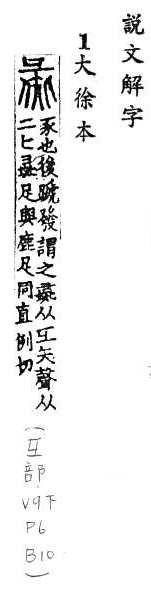 說文解字
1大徐本
彘
豕也後蹏發謂之彘从彑矢聲从
二匕彘足與鹿足同直例切
(彑部
V9下
P6
B10)